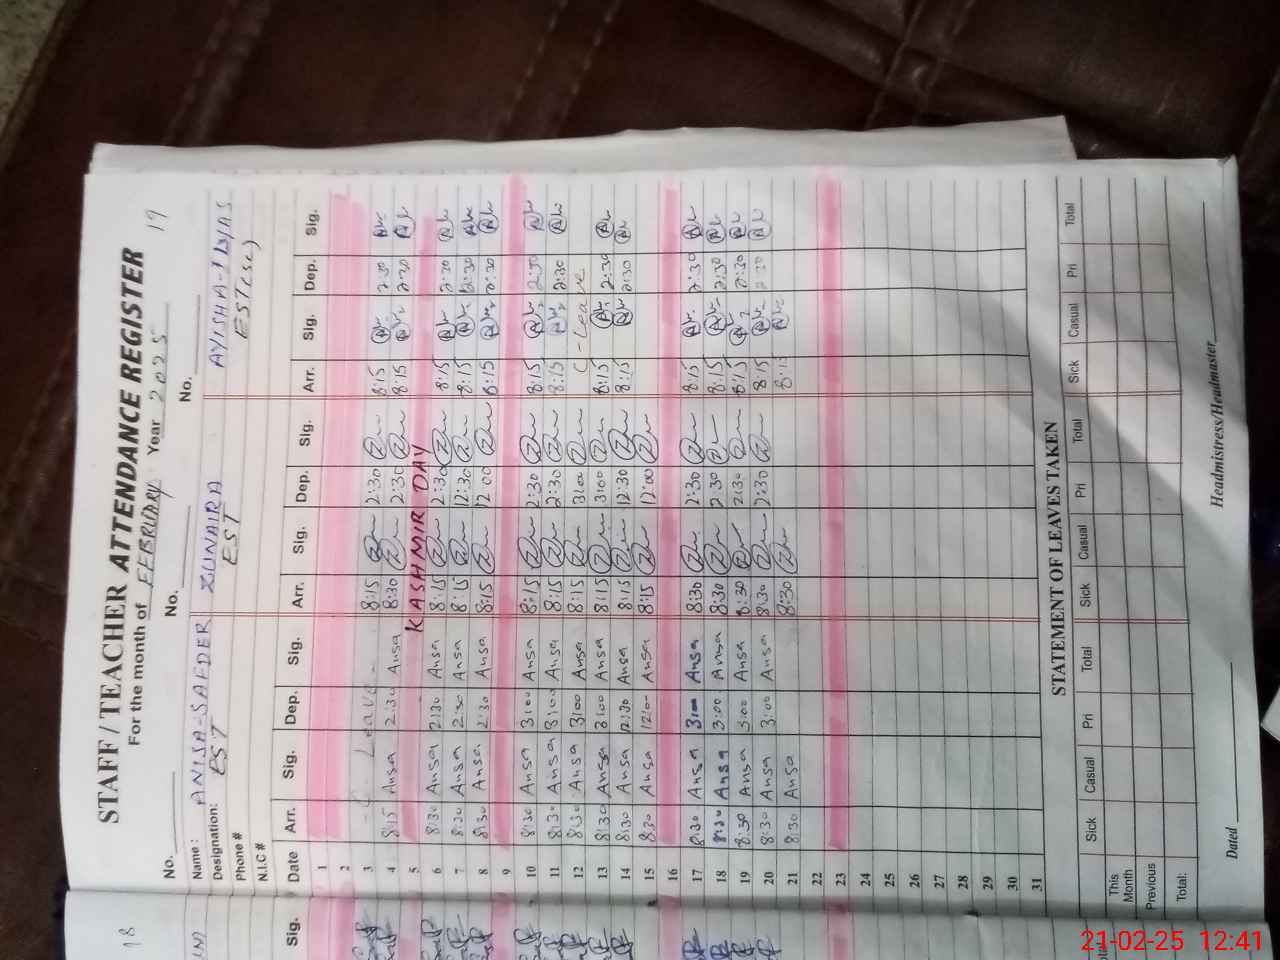 19
STAFF / TEACHER ATTENDANCE REGISTER
For the month of FEBRUARY Year 2025
No. No. No.
Name : ANISA-SAEDER ZUNAIRA AYISHA-ILYAS
Designation: EST EST EST(SC)
Phone #
N.I.C #
Date Arr. Sig. Dep. Sig. Arr. Sig. Dep. Sig. Arr. Sig. Dep. Sig.
1
2
3 - C. Leave - 8:15 2:30 8:15 2:30
4 8:15 Ansa 2:30 Ansa 8:30 2:30 8:15 2:30
5 KASHMIR DAY
6 8:30 Ansa 2:30 Ansa 8:15 2:30 8:15 2:30
7 8:30 Ansa 2:30 Ansa 8:15 12:30 8:15 2:30
8 8:30 Ansa 2:30 Ansa 8:15 12:00 8:15 2:30
9
10 8:30 Ansa 3:00 Ansa 8:15 2:30 8:15 2:30
11 8:30 Ansa 3:00 Ansa 8:15 2:30 8:15 2:30
12 8:30 Ansa 3:00 Ansa 8:15 3:00 C - Leave
13 8:30 Ansa 3:00 Ansa 8:15 3:00 8:15 2:30
14 8:30 Ansa 12:30 Ansa 8:15 12:30 8:15 2:30
15 8:30 Ansa 12:00 Ansa 8:15 12:00
16
17 8:30 Ansa 3:00 Ansa 8:30 2:30 8:15 2:30
18 8:30 Ansa 3:00 Ansa 8:30 2:30 8:15 2:30
19 8:30 Ansa 3:00 Ansa 8:30 2:30 8:15 2:30
20 8:30 Ansa 3:00 Ansa 8:30 2:30 8:15 2:30
21 8:30 Ansa 8:30 8:15
22
23
24
25
26
27
28
29
30
31
STATEMENT OF LEAVES TAKEN
Sick Casual Pri Total Sick Casual Pri Total Sick Casual Pri Total
This Month
Previous
Total:
Dated Headmistress/Headmaster
18
Sig.
21-02-25 12:41